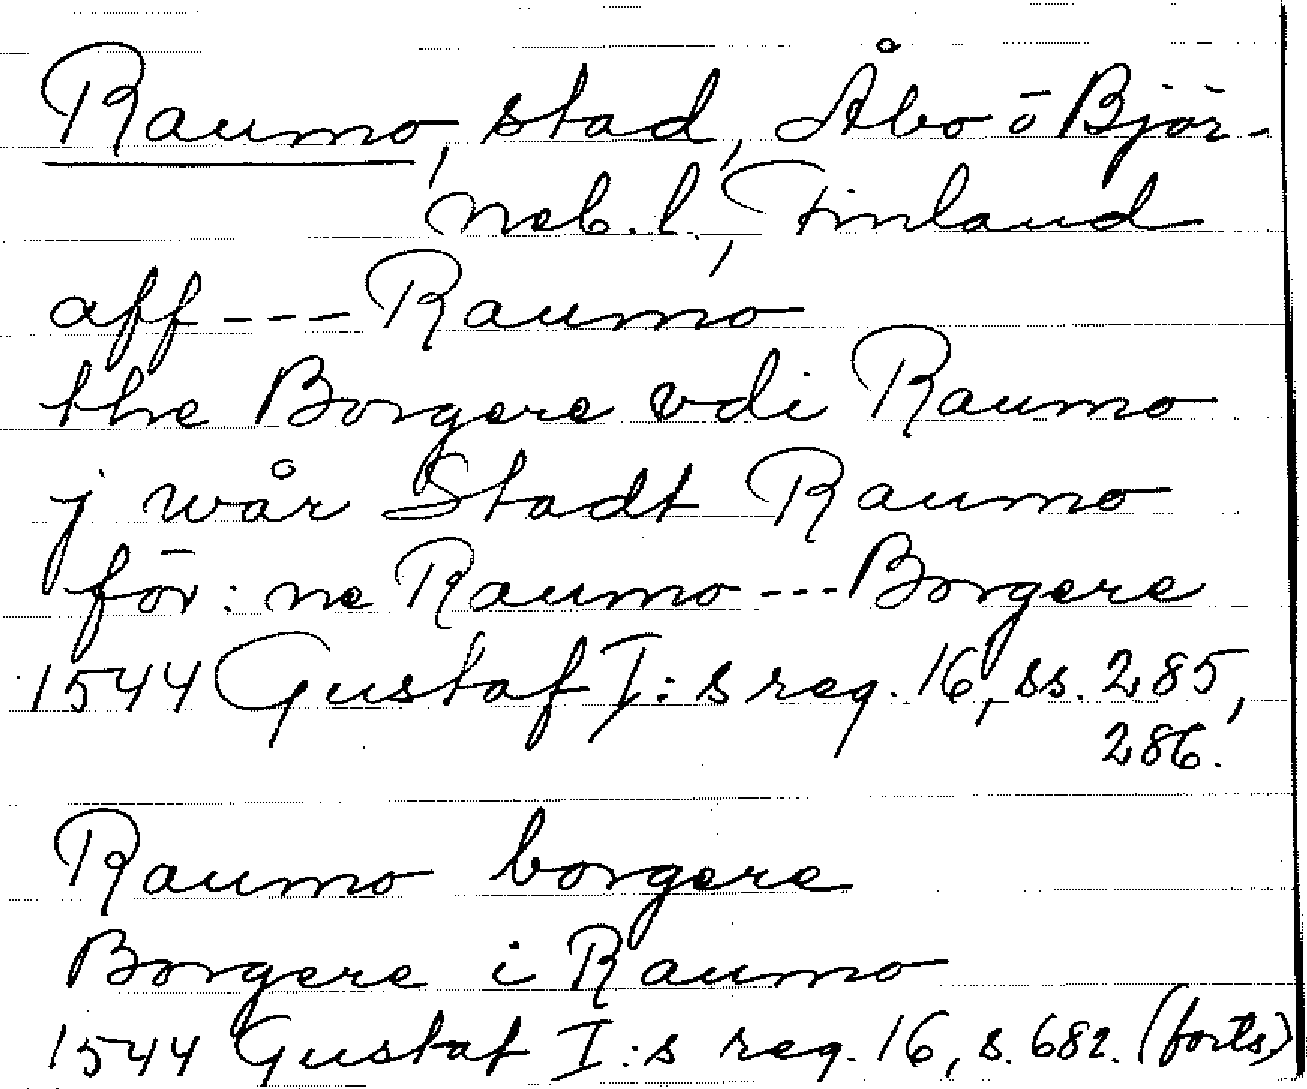 Raumo, stad, Åbo ō Björ-
neb. l., Finland
aff --- Raumo
the Borgere vdi Raumo
j wår Stadt Raumo
för: ne Raumo --- Borgere
1544 Gustaf I: s reg. 16, ss. 285,
286.
Raumo borgere
Borgere i Raumo
1544 Gustaf I: s reg. 16, s. 682. (forts)